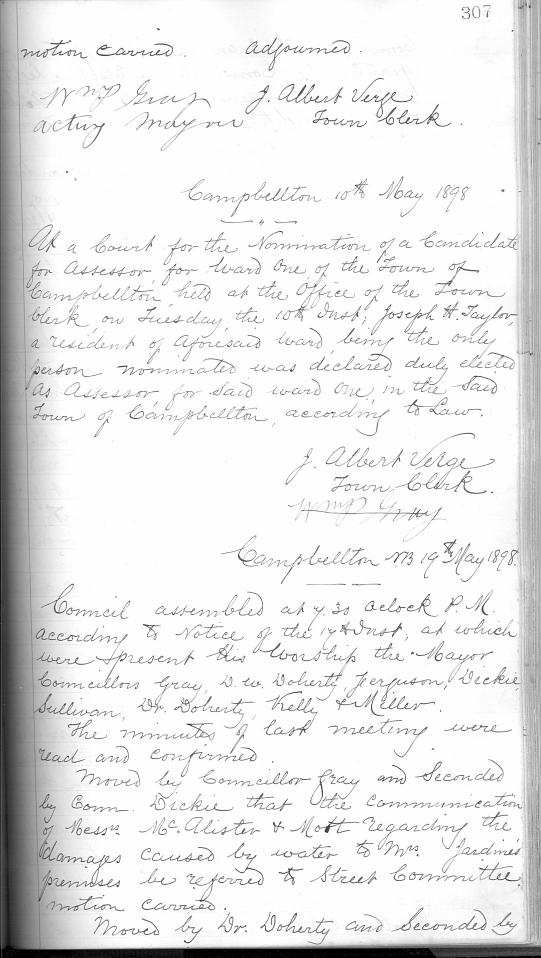 307
motion carried. Adjourned.
Wm P Gray J. Albert Verge
acting Mayor Town Clerk.
Campbellton 10th May 1898
At a Court for the Nomination of a Candidate
for Assessor for Ward One of the Town of
Campbellton, held at the Office of the Town
Clerk, on Tuesday, the 10th Inst; Joseph H. Taylor,
a resident of Aforesaid Ward, being the only
person nominated was declared duly elected
As Assessor, for Said Ward One, in the Said
Town of Campbellton, according to Law.
J. Albert Verge
Town Clerk.
Wm P Gray
Campbellton NB 19th May 1898.
Council assembled at 7.30 oclock P.M.
according to Notice of the 17th Inst, at which
were present His Worship the Mayor
Councillors Gray, D.W. Doherty, Ferguson, Dickie,
Sullivan, Dr. Doherty, Kelly & Miller.
The minutes of last meeting were
read and confirmed.
Moved by Councillor Gray and Seconded
by Coun. Dickie that the communication
of Messrs. McAlister & Mott regarding the
damages caused by water to Mrs. Jardine's
premises be referred to Street Committee.
motion carried.
Moved by Dr. Doherty and Seconded by